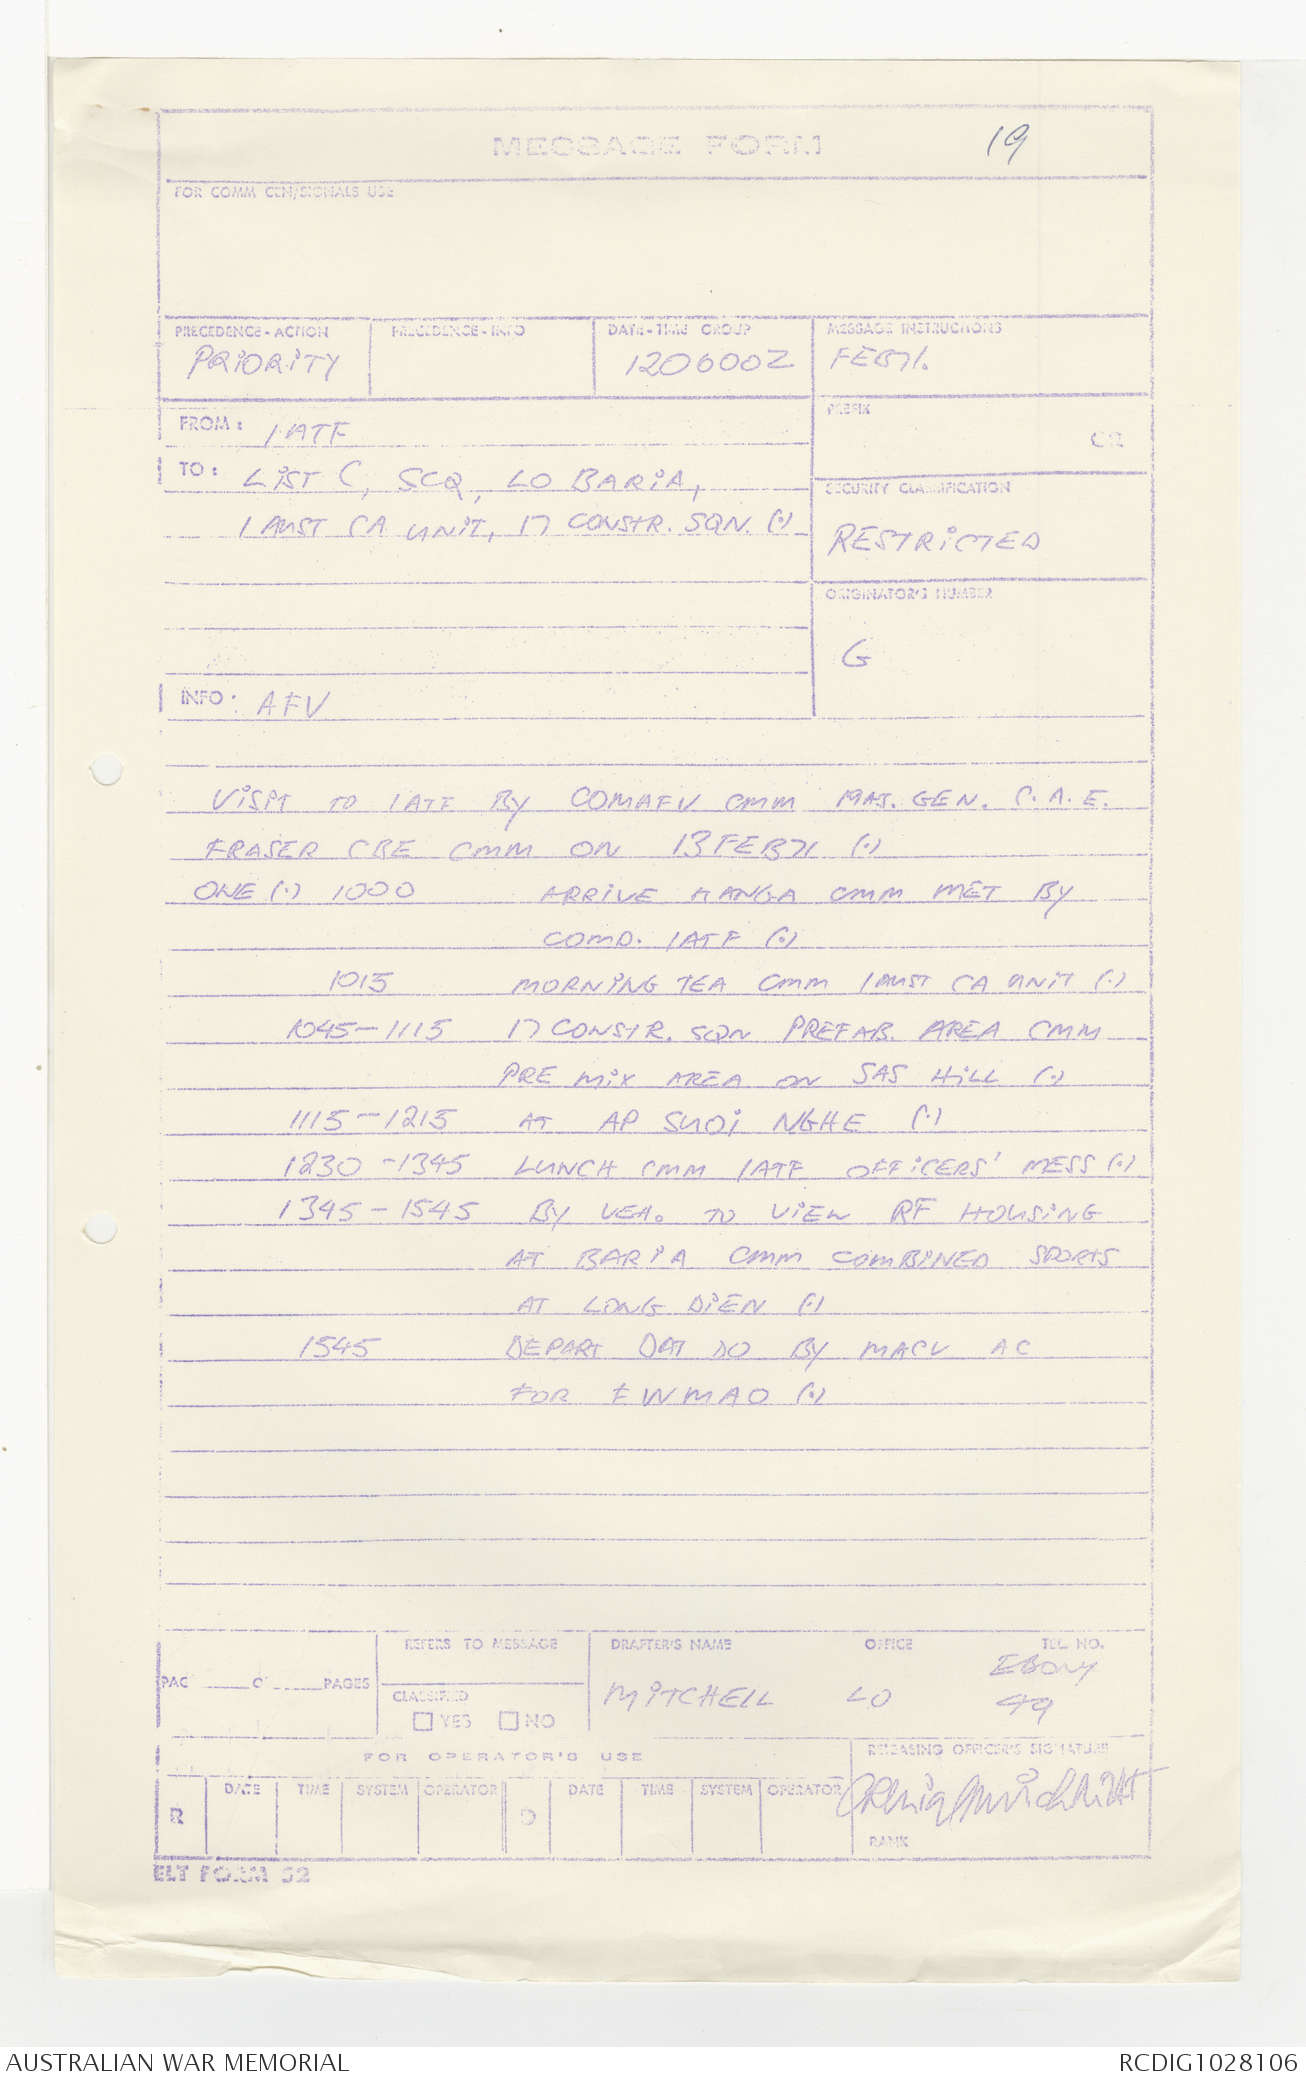 MESSAGE FORM
19
FOR COMM CEN/SIGNALS USE
PRECEDENCE - ACTION
PRECEDENCE - INFO
DATE - TIME GROUP
MESSAGE INSTRUCTIONS
PRIORITY
120600Z
FEB71.
PREFIX
GR
FROM: 1ATF
TO: LIST C, SCQ, LO BARIA,
1 AUST CA UNIT, 17 CONSTR. SQN. (.)
SECURITY CLASSIFICATION
RESTRICTED
ORIGINATOR'S NUMBER
G
INFO: AFV
VISIT TO 1ATF BY COMAFV CMM MAJ. GEN. C.A.E.
FRASER CBE CMM ON 13 FEB 71 (.)
ONE (.) 1000 ARRIVE KANGA CMM MET BY
COMD. 1ATF (.)
1015 MORNING TEA CMM 1 AUST CA UNIT (.)
1045-1115 17 CONSTR. SQN PREFAB. AREA CMM
PRE MIX AREA ON SAS HILL (.)
1115-1215 AT AP SUOI NGHE (.)
1230-1345 LUNCH CMM 1ATF OFFICERS' MESS (.)
1345-1545 BY VEH. TO VIEW RF HOUSING
AT BARIA CMM COMBINED SPORTS
AT LONG DIEN (.)
1545 DEPART DAT DO BY MACV AC
FOR FWMAO (.)
REFERS TO MESSAGE
DRAFTER'S NAME
OFFICE
TEL. NO.
PAGE OF PAGES
CLASSIFIED
YES NO
MITCHELL
LO
EBONY
49
FOR OPERATOR'S USE
RELEASING OFFICER'S SIGNATURE
R DATE TIME SYSTEM OPERATOR D DATE TIME SYSTEM OPERATOR
RANK
ELT FORM 52
AUSTRALIAN WAR MEMORIAL
RCDIG1028106